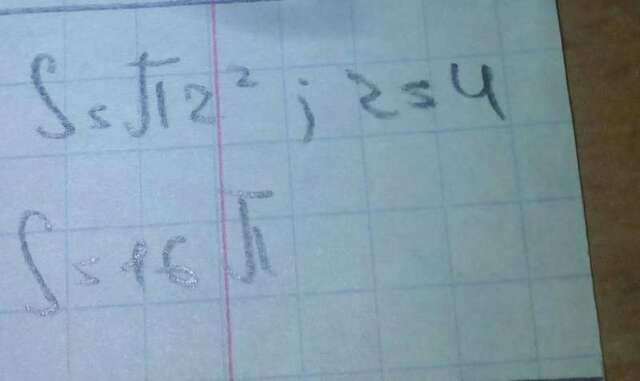 S = πr² ; r = 4
S = 16π